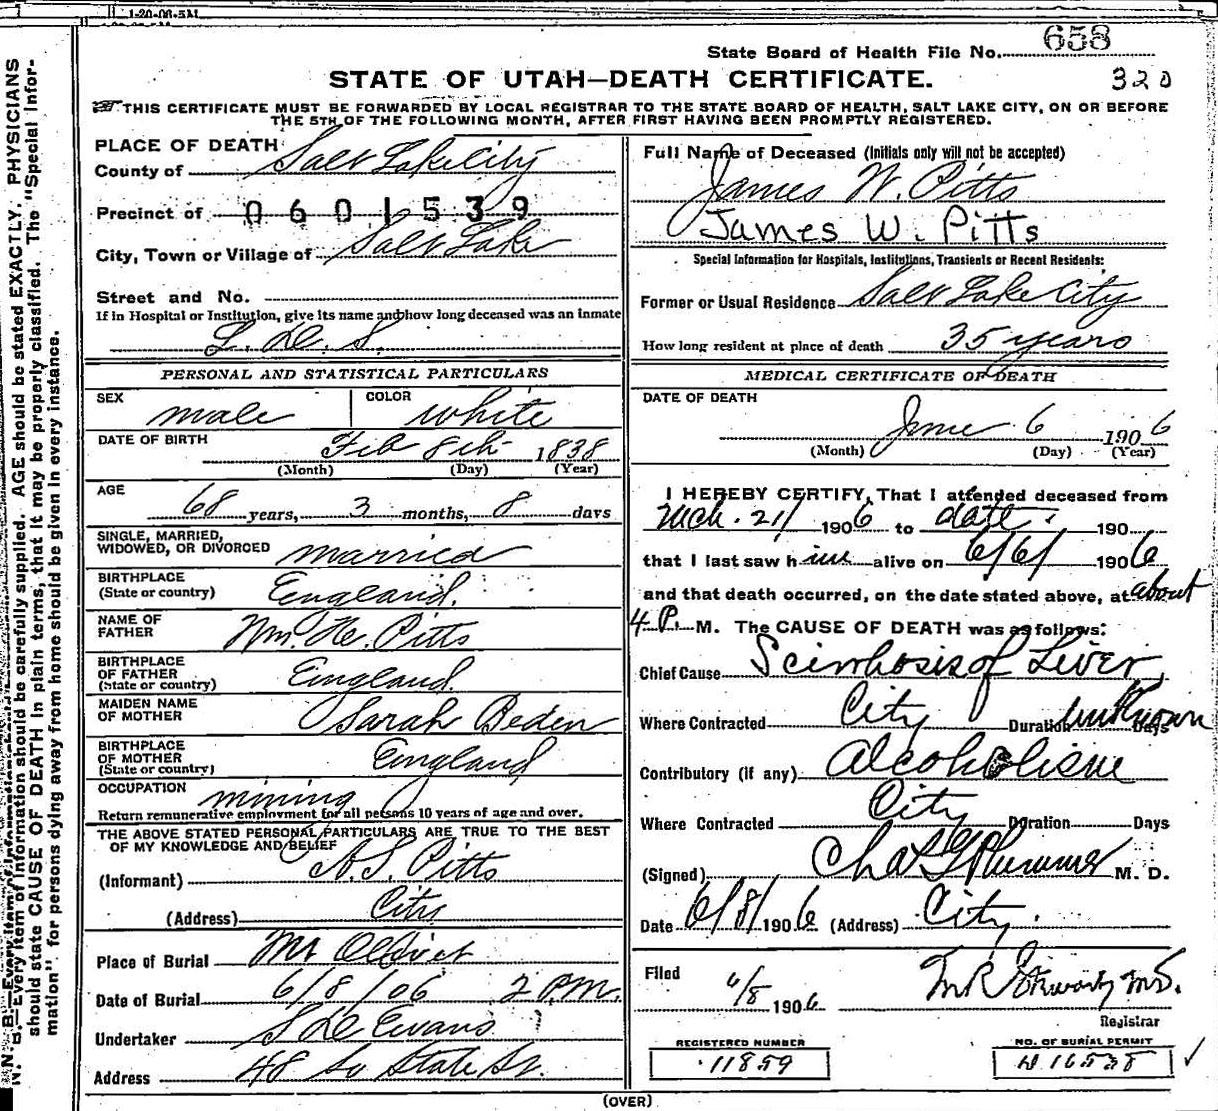 1-20-06-5M
State Board of Health File No. 658
STATE OF UTAH—DEATH CERTIFICATE.
320
THIS CERTIFICATE MUST BE FORWARDED BY LOCAL REGISTRAR TO THE STATE BOARD OF HEALTH, SALT LAKE CITY, ON OR BEFORE
THE 5TH OF THE FOLLOWING MONTH, AFTER FIRST HAVING BEEN PROMPTLY REGISTERED.
PLACE OF DEATH
County of Salt Lake City
Precinct of 0601539
City, Town or Village of Salt Lake
Street and No.
If in Hospital or Institution, give its name and how long deceased was an inmate
L. D. S.
PERSONAL AND STATISTICAL PARTICULARS
SEX male COLOR white
DATE OF BIRTH Feb 8th 1838
(Month) (Day) (Year)
AGE
68 years, 3 months, 8 days
SINGLE, MARRIED,
WIDOWED, OR DIVORCED married
BIRTHPLACE
(State or country) England.
NAME OF
FATHER Wm. He. Pitts
BIRTHPLACE
OF FATHER
(State or country) England.
MAIDEN NAME
OF MOTHER Sarah Beden
BIRTHPLACE
OF MOTHER
(State or country) England
OCCUPATION mining
Return remunerative employment for all persons 10 years of age and over.
THE ABOVE STATED PERSONAL PARTICULARS ARE TRUE TO THE BEST
OF MY KNOWLEDGE AND BELIEF
(Informant) A. S. Pitts
(Address) City
Place of Burial Mt Olivet
Date of Burial 6/8/06 2 P.M.
Undertaker S D Evans
Address 48 So State St.
Full Name of Deceased (Initials only will not be accepted)
James W. Pitts
James W. Pitts
Special Information for Hospitals, Institutions, Transients or Recent Residents:
Former or Usual Residence Salt Lake City
How long resident at place of death 35 years
MEDICAL CERTIFICATE OF DEATH
DATE OF DEATH
June 6 1906
(Month) (Day) (Year)
I HEREBY CERTIFY, That I attended deceased from
Mch. 21/ 1906 to date. 190
that I last saw him alive on 6/6/ 1906
and that death occurred, on the date stated above, at about
4 P. M. The CAUSE OF DEATH was as follows:
Chief Cause Scirrhosis of Liver
Where Contracted City Duration unknown Days
Contributory (if any) Alcoholism
Where Contracted City Duration Days
(Signed) Chas G Plummer M. D.
Date 6/8/1906 (Address) City.
Filed 6/8 1906
Registrar
REGISTERED NUMBER
11859
NO. OF BURIAL PERMIT
(OVER)
N. B.—Every item of information should be carefully supplied. AGE should be stated EXACTLY. PHYSICIANS
should state CAUSE OF DEATH in plain terms, that it may be properly classified. The "Special Infor-
mation" for persons dying away from home should be given in every instance.